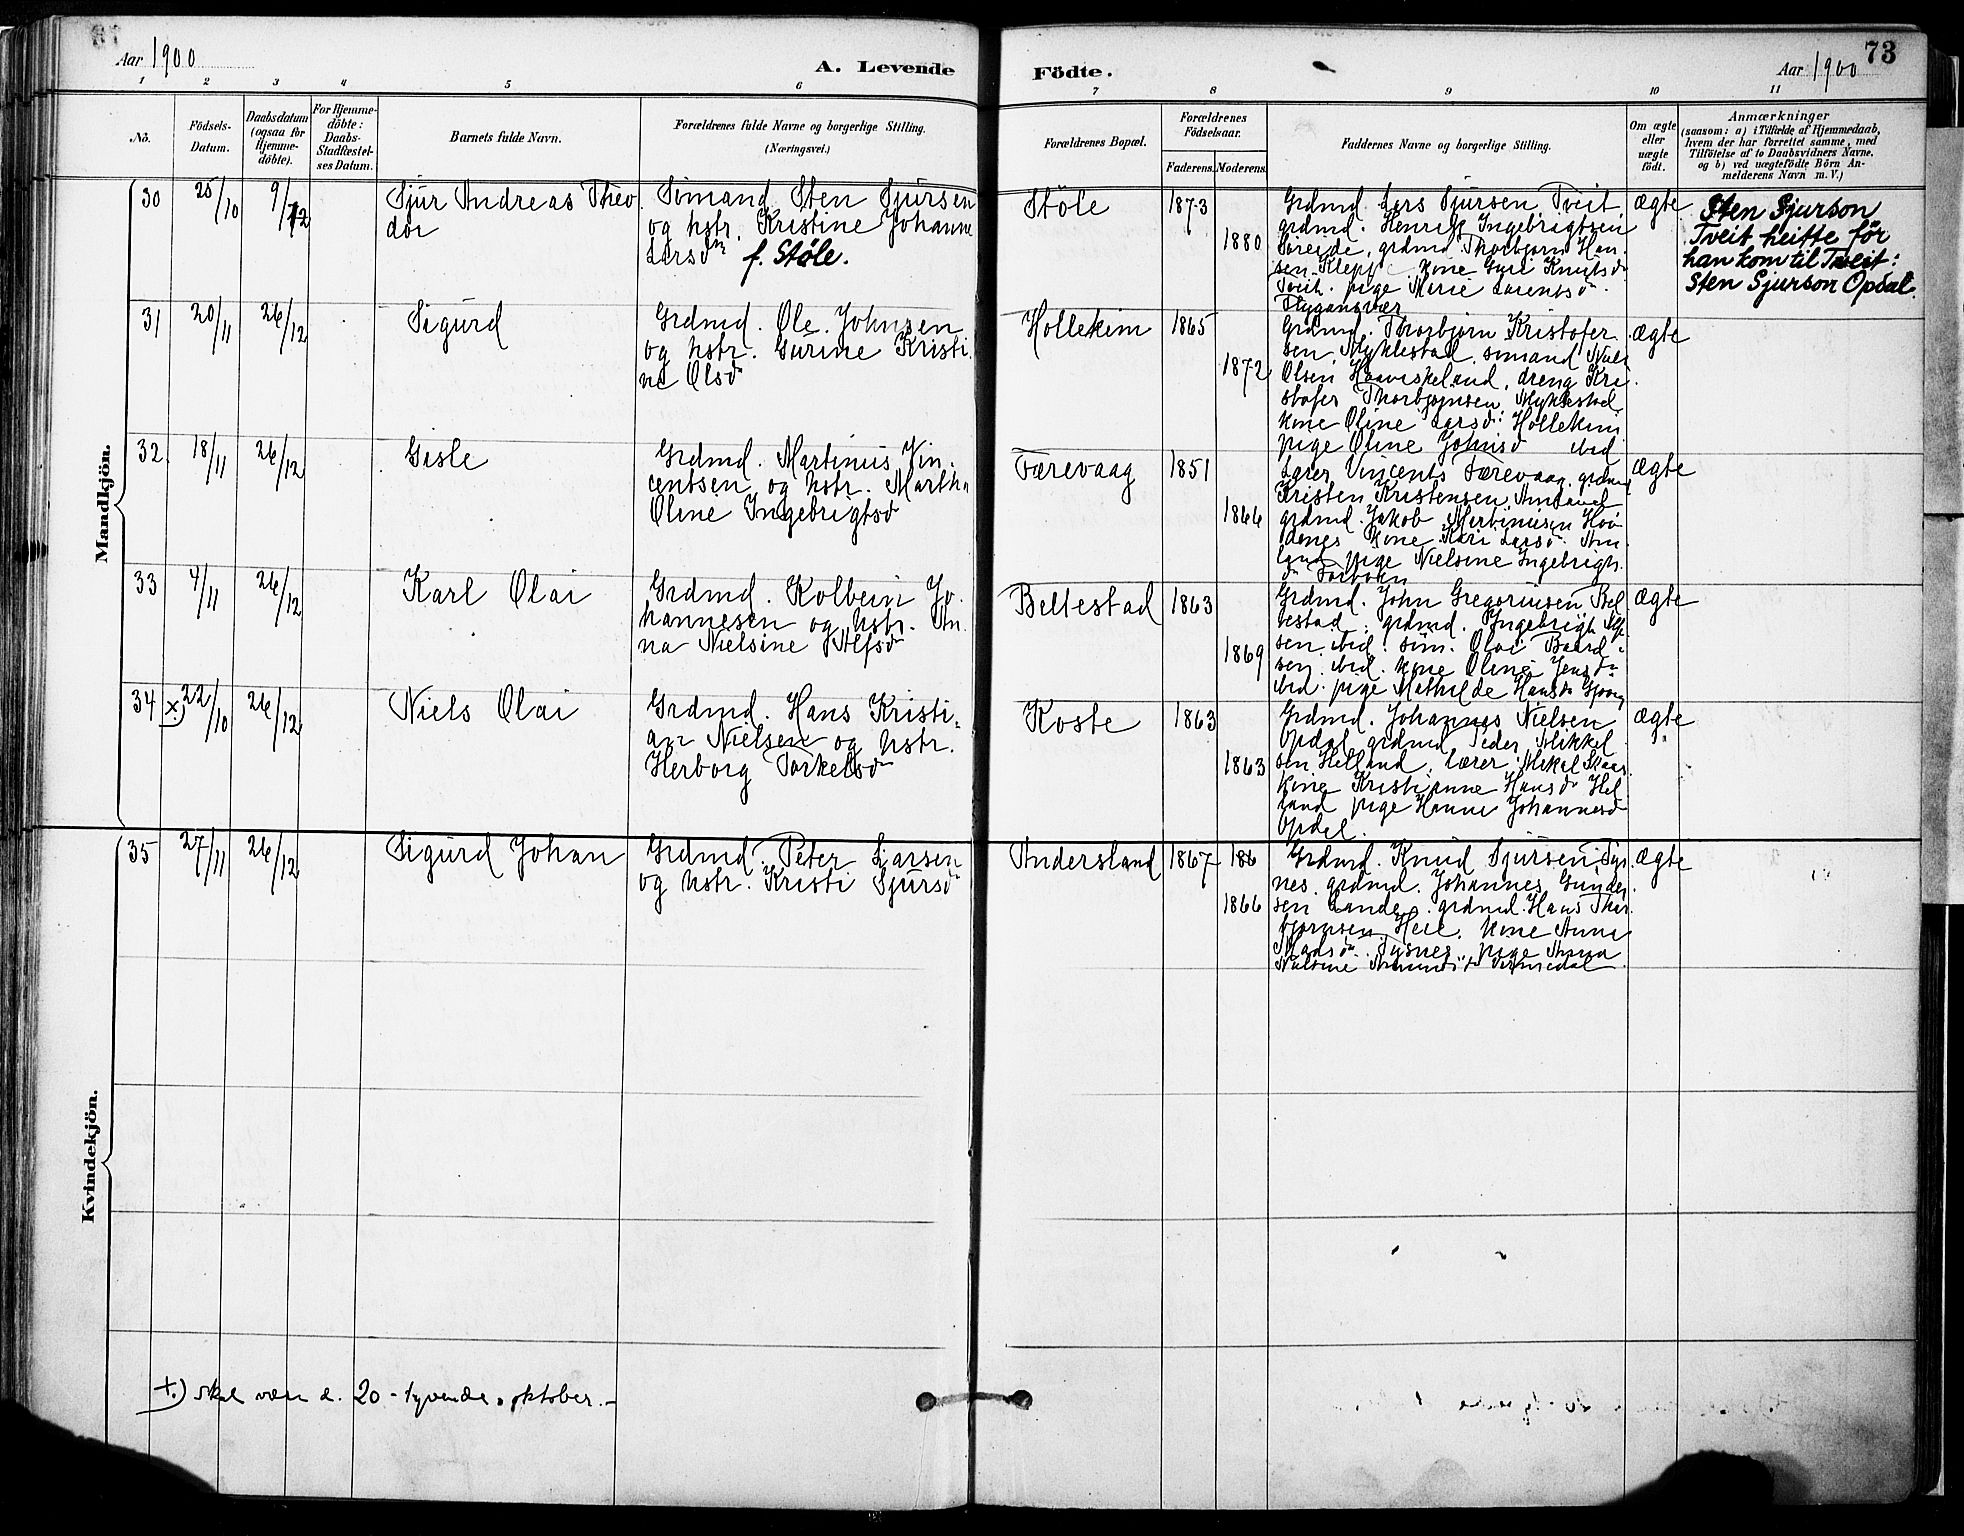 Aar 1900
A. Levende
Födte.
Aar 1900
73
1 2 3 4 5 6 7 8 9 10 11
No.
Födsels-
Datum.
Daabsdatum
(ogsaa for
Hjemme-
döbte).
For Hjemme-
döbte:
Daabs-
Stadfæstel-
ses Datum.
Barnets fulde Navn.
Forældrenes fulde Navne og borgerlige Stilling.
(Næringsvei.)
Forældrenes Bopæl.
Forældrenes
Födselsaar.
Faderens. Moderens.
Faddernes Navne og borgerlige Stilling.
Om ægte
eller
uægte
födt.
Anmærkninger
(saasom: a) i Tilfælde af Hjemmedaab,
hvem der har forrettet samme, med
Tilföielse af to Daabsvidners Navne,
og b) ved uægtefödte Börn An-
melderens Navn m. V.)
Mandkjön.
30 25/10 9/12
Sjur Andreas Theo
dor
Sømand Sten Sjursen
og hstr. Kristine Johanne
Larsdn f. Støle.
Støle
1873
1880
Grdmd. Lars Sjursen Tveit
grdmd. Henrik Ingebrigtsen
grdmd. Thorbjørn Han
sen Klepp kone Guri Knutsd
Tveit. pige Marie Larentsd
Flygansvær
ægte
Sten Sjurson
Tveit heitte før
han kom til Tveit:
Sten Sjurson Opdal.
31 20/11 26/12
Sigurd
Grdmd. Ole Johnsen
og hstr. Gurine Kristi
ne Olsd
Hollekim
1865
1872
Grdmd. Thorbjørn Kristofer
sen Myklestad. sømand Niels
Olsen Haaviskeland, dreng Kri
stofer Thorbjørnsen Myklestad
kone Oline Larsd. Hollekim
pige Oline Johnsd ibid
ægte
32 18/11 26/12
Gisle
Grdmd. Martinus Vin
centsen og hstr. Martha
Oline Ingebrigtsd
Færevaag
1851
1866
Lærer Vincents Færevaag, grdmd
Kristen Kristensen
grdmd. Jakob Martinusen Hov
danes kone Kari Larsd. Am
land pige Nielsine Ingebrigt
ægte
33 4/11 26/12
Karl Olai
Grdmd. Kolbein Jo
hannesen og hstr. An
na Nielsine Alfsd
Beltestad
1863
1869
Grdmd. John Gregoriusen Bel
testad, grdmd. Ingebrigt Alf
sen ibid. søm. Olai Baard
sen ibid. kone Oline Jensd
ibid. pige Mathilde Hansd
ægte
34 x) 22/10 26/12
Niels Olai
Grdmd. Hans Kristi-
an Nielsen og hstr.
Herborg Torkelsd
Koste
1863
1863
Grdmd. Johannes Nielsen
Opdal grdmd Peder Mikkel
sen Helland, Lærer Mikal Skaar
kone Kristianne Hansd Hel
land pige Hanna Johannesd
Opdal.
ægte
35 27/11 26/12
Sigurd Johan
Grdmd. Peter Larsen
og hstr. Kristi Sjursd
Andersland
1867 186
1866
Grdmd. Knud Sjursen Tys
nes grdmd. Johannes Gunder
sen Lande, grdmd. Hans Thor
bjørnsen Heie. kone Anna
Madsd. Tysnes. pige Anna
ægte
Kvindekjön.
+) skal være d. 20 - tyvende oktober. -